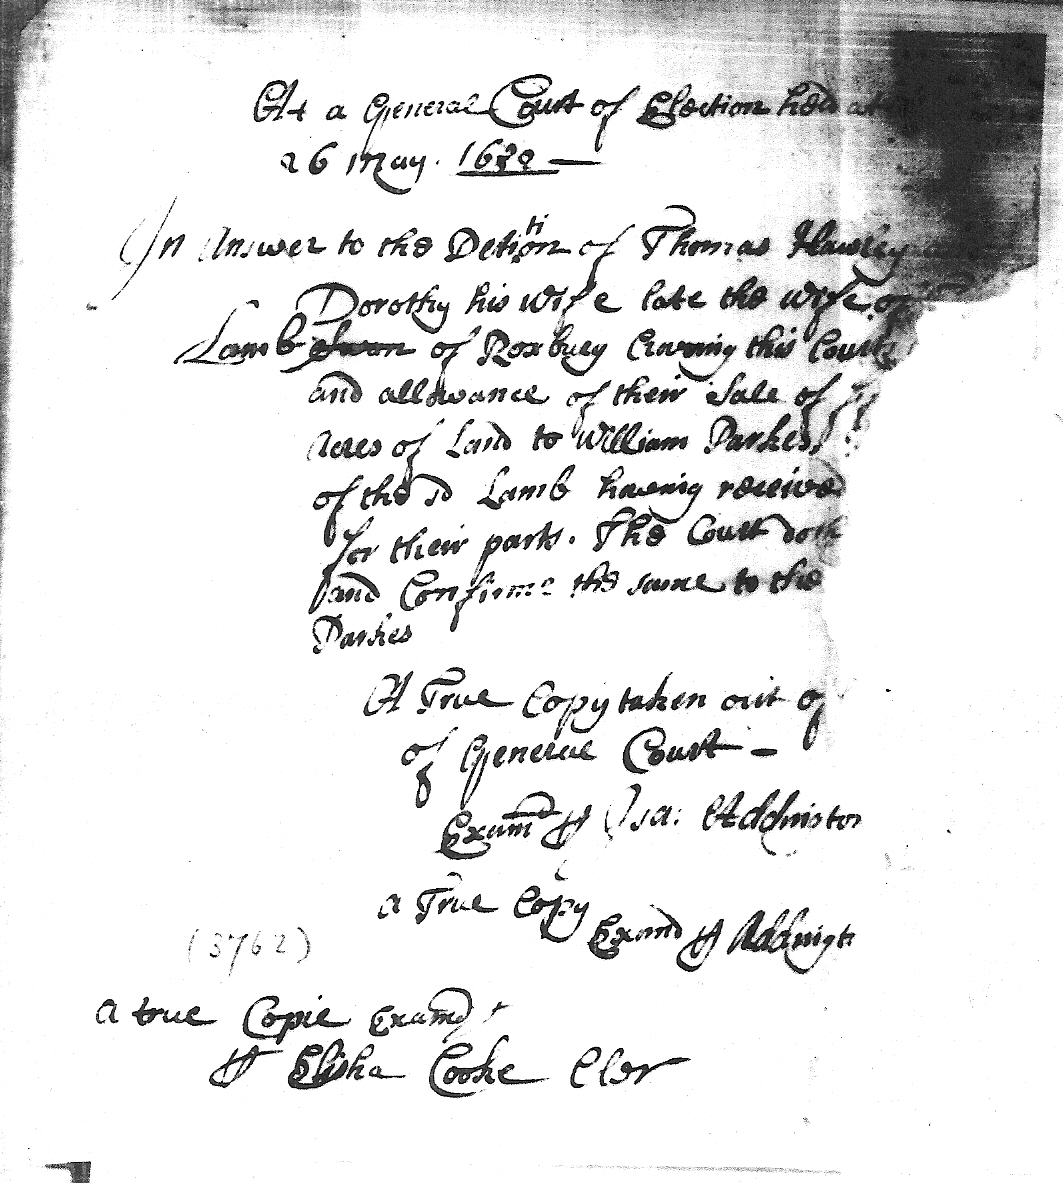 At a General Court of Election held at
26 May. 1680
In Answer to the Petition of Thomas Hawley
Dorothy his wife late the wife of
Lamb Swan of Roxbury Craving this Courts
and allowance of their Sale of
Acres of Land to William Parkes,
of the sd Lamb having received
for their parts. The Court doth
and Confirme the same to the
Parkes
A True Copy taken out of
of General Court
Examd ꝑ Isa: Addinton
a True Copy
Examd ꝑ
(3762)
a true Copie Examd
ꝑ Elisha Cooke Cler